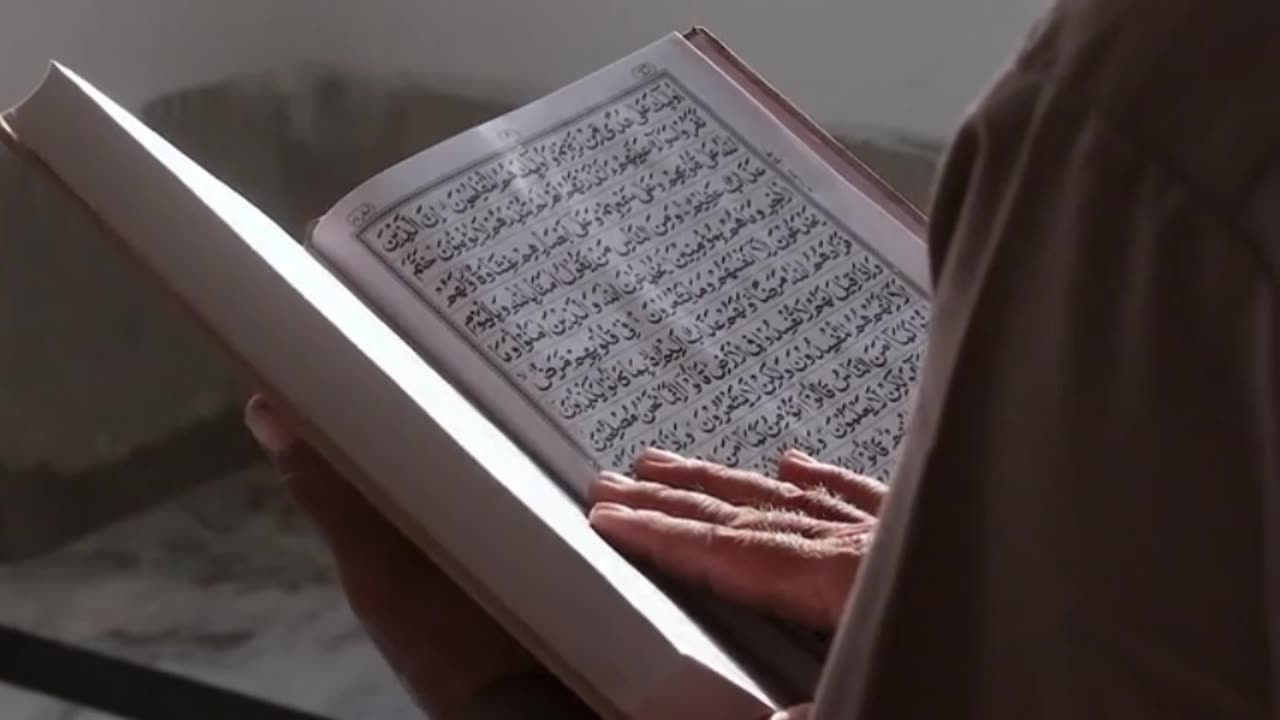 اُولٰٓئِكَ عَلٰى هُدًى مِّنْ رَّبِّهِمْ وَاُولٰٓئِكَ هُمُ الْمُفْلِحُوْنَ اِنَّ الَّذِيْنَ
كَفَرُوْا سَوَآءٌ عَلَيْهِمْ ءَاَنْذَرْتَهُمْ اَمْ لَمْ تُنْذِرْهُمْ لَا يُؤْمِنُوْنَ خَتَمَ
اللّٰهُ عَلٰى قُلُوْبِهِمْ وَعَلٰى سَمْعِهِمْ وَعَلٰٓى اَبْصَارِهِمْ غِشَاوَةٌ وَّلَهُمْ
عَذَابٌ عَظِيْمٌ وَمِنَ النَّاسِ مَنْ يَّقُوْلُ اٰمَنَّا بِاللّٰهِ وَبِالْيَوْمِ
الْاٰخِرِ وَمَا هُمْ بِمُؤْمِنِيْنَ يُخٰدِعُوْنَ اللّٰهَ وَالَّذِيْنَ اٰمَنُوْا وَمَا
يَخْدَعُوْنَ اِلَّآ اَنْفُسَهُمْ وَمَا يَشْعُرُوْنَ فِيْ قُلُوْبِهِمْ مَّرَضٌ
فَزَادَهُمُ اللّٰهُ مَرَضًا وَلَهُمْ عَذَابٌ اَلِيْمٌ بِمَا كَانُوْا يَكْذِبُوْنَ
وَاِذَا قِيْلَ لَهُمْ لَا تُفْسِدُوْا فِى الْاَرْضِ قَالُوْٓا اِنَّمَا نَحْنُ مُصْلِحُوْنَ
اِنَّهُمْ هُمُ الْمُفْسِدُوْنَ وَلٰكِنْ لَّا يَشْعُرُوْنَ وَاِذَا
كَمَآ اٰمَنَ النَّاسُ قَالُوْٓا اَنُؤْمِنُ كَمَآ اٰمَنَ
وَلٰكِنْ لَّا يَعْلَمُوْنَ وَاِذَا
قَالُوْٓا